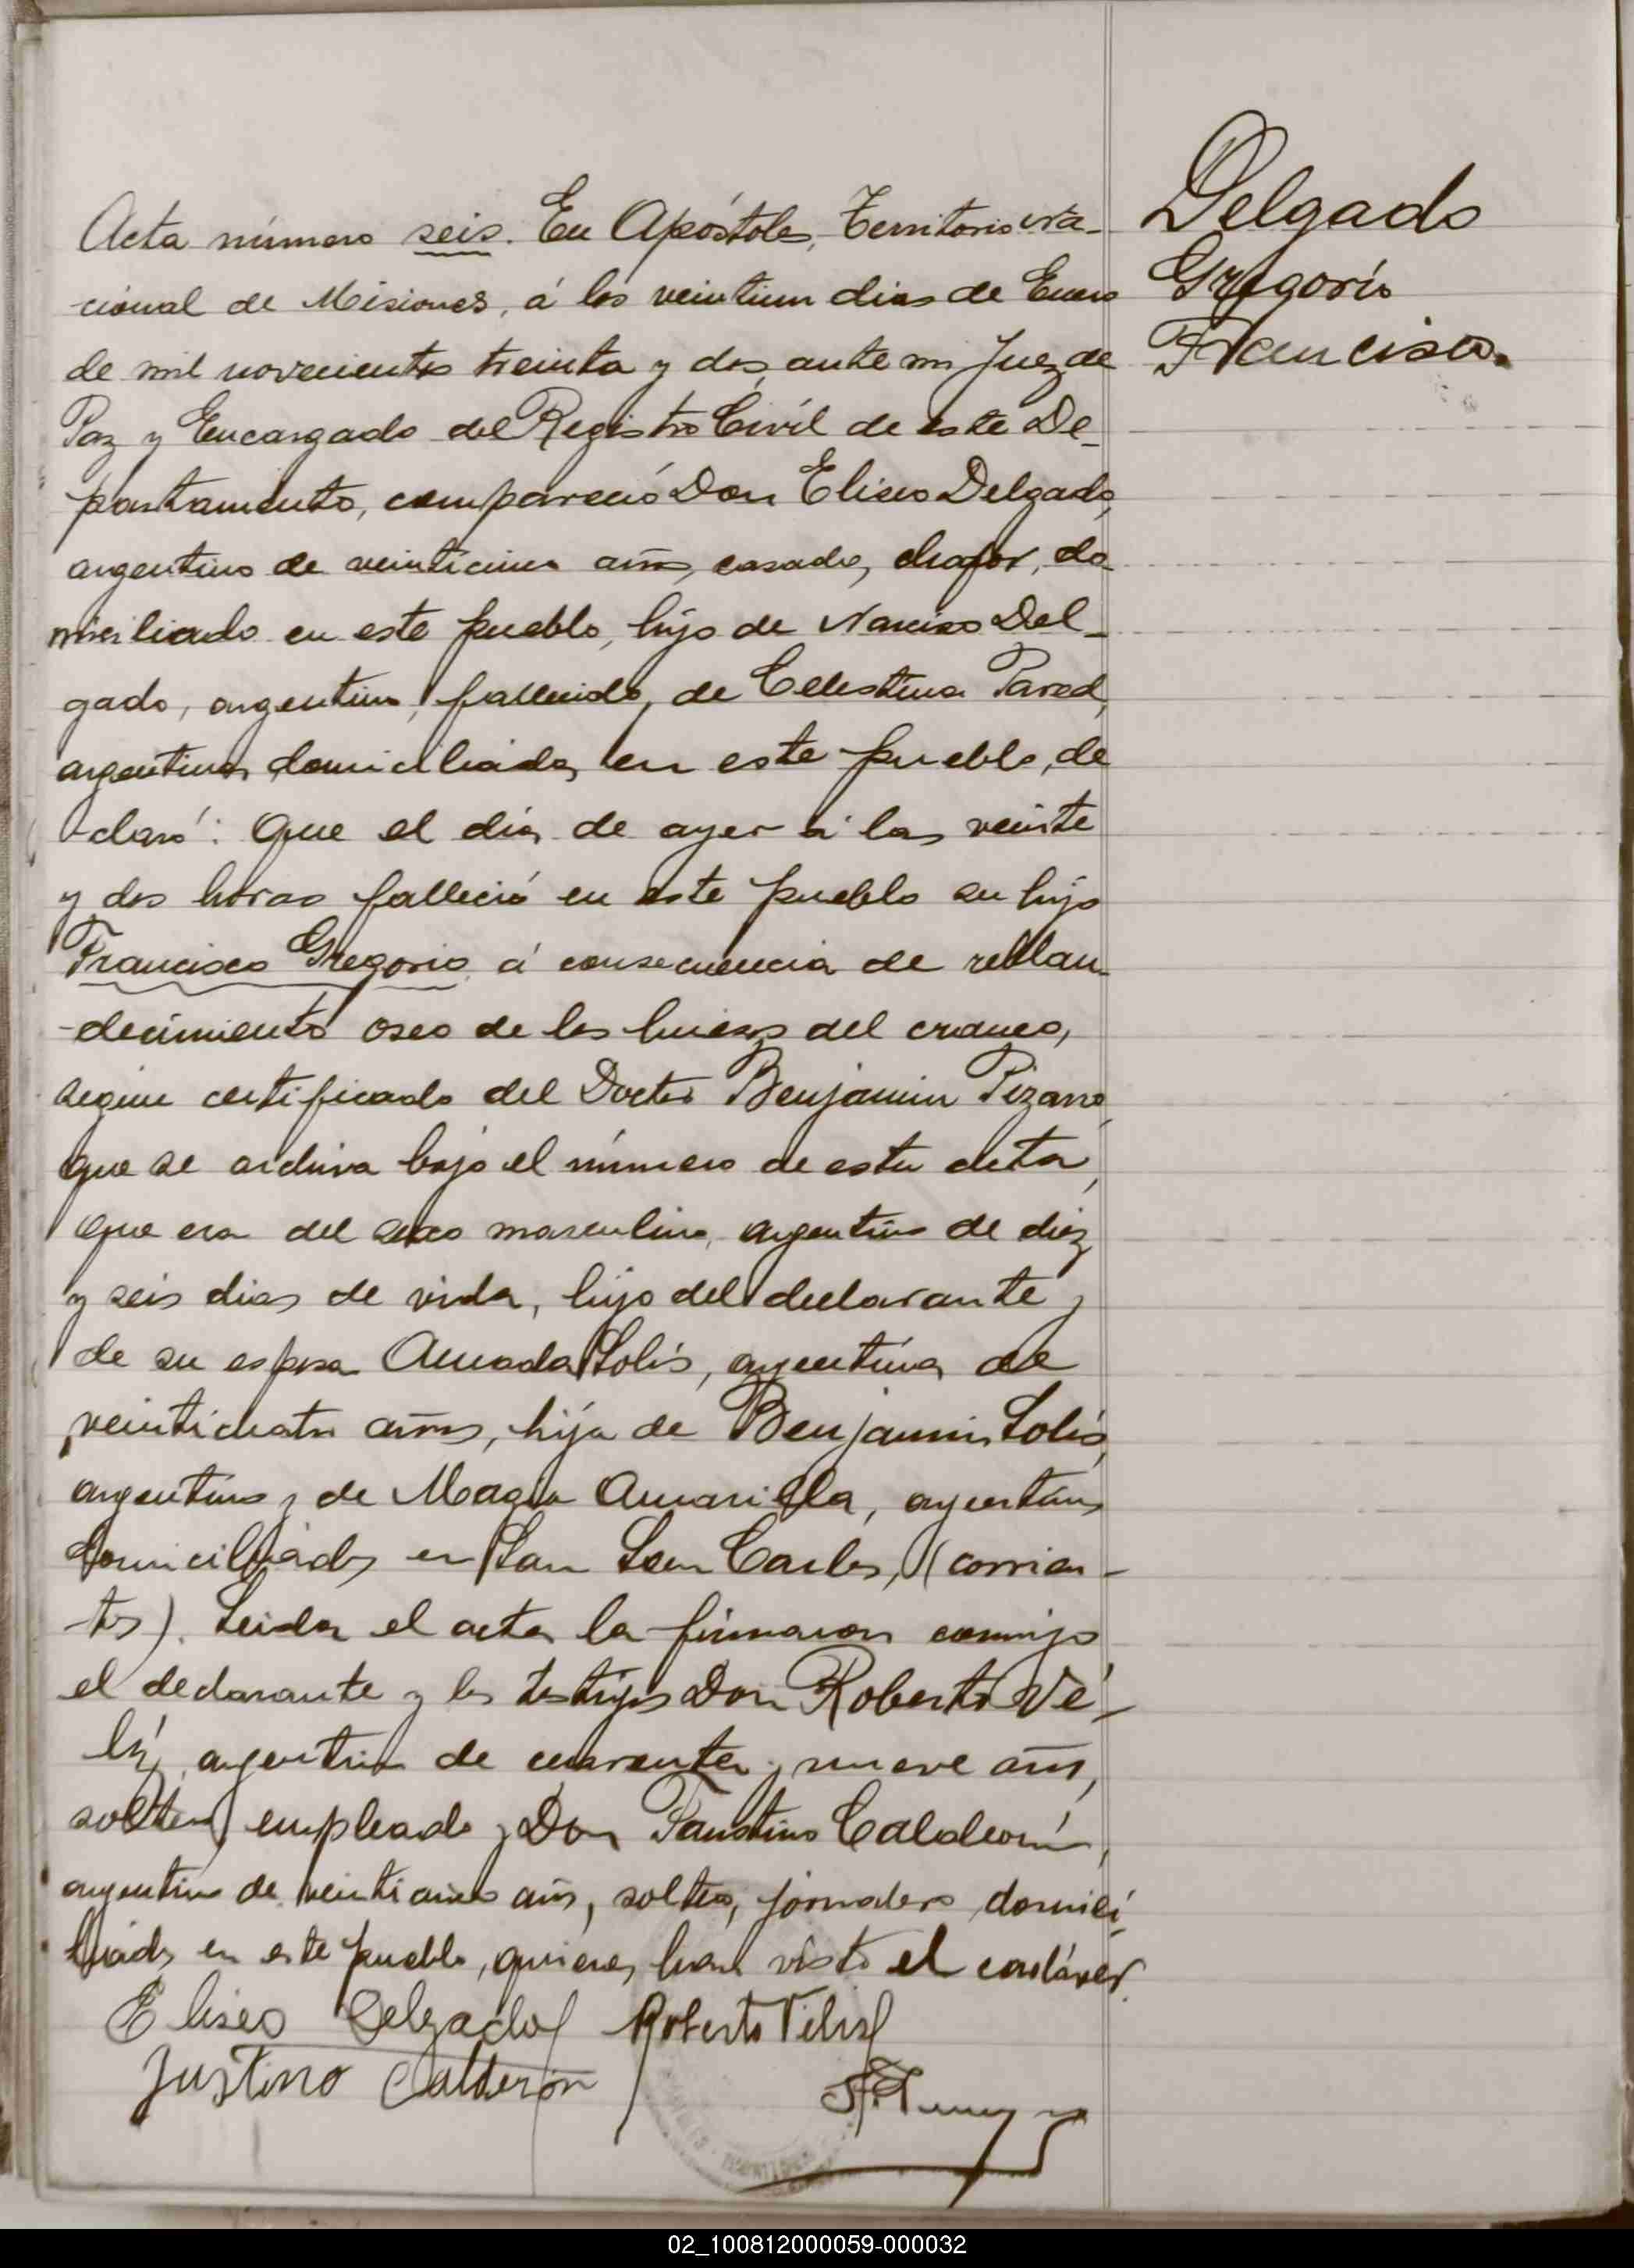 Acta número seis. En Apóstoles, Territorio Na-
-cional de Misiones, á los veintiun dias de Enero
de mil novecientos treinta y dos, ante mi Juez de
Paz y Encargado del Registro Civil de este De-
partamento, compareció Don Eliseo Delgado,
argentino de veinticinco años, casado, chafor, do-
miciliado en este pueblo, hijo de Narciso Del-
gado, argentino, fallecido, de Celestina Pared,
argentina, domiciliada, en este pueblo, de
-claró: Que el día de ayer á las veinte
y dos horas falleció en este pueblo su hijo
Francisco Gregorio á consecuencia de reblan-
-decimiento oseo de los huesos del craneo,
según certificado del Doctor Benjamin Pizarro
que se archiva bajo el número de esta acta,
que era del sexo masculino, argentino de diez
y seis dias de vida, hijo del declarante y
de su esposa Amada Solis, argentina de
veinticuatro años, hija de Benjamin Solis,
argentino y de Amarilla, argentina
domiciliados en San Carlos, (corrien-
-tes). Leida el acta la firmaron conmigo
el declarante y los testigos Don Roberto Vé-
liz, argentino de cuarenta y nueve años,
soltero, empleado y Don Faustino Calderón,
argentino de veinticinco años, soltero, jornalero, domici-
liados en este pueblo, quienes han visto el cadáver.
Eliseo Delgado Roberto Veliz
Justino Calderón
Delgado
Gregorio
Francisco.
02_100812000059-000032